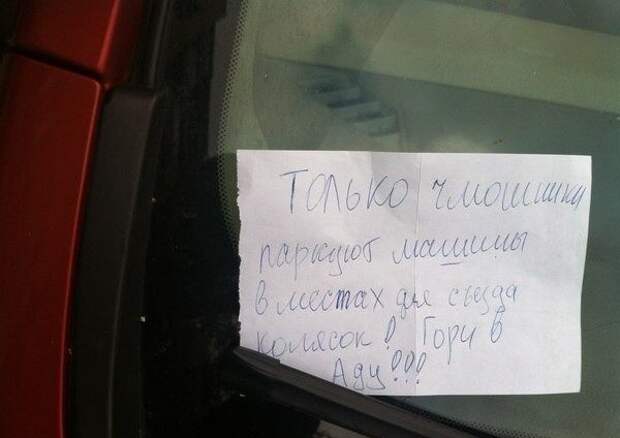 Только чмошники
паркуют машины
в местах для съезда
колясок! Гори в
Аду!!!